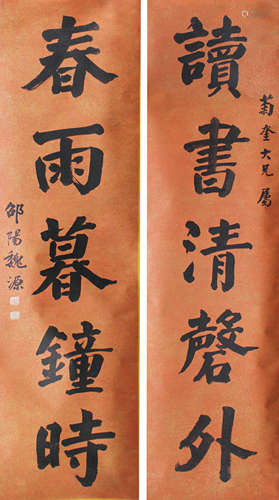 菊奎大兄屬
讀書清磬外
春雨暮鐘時
邵陽魏源